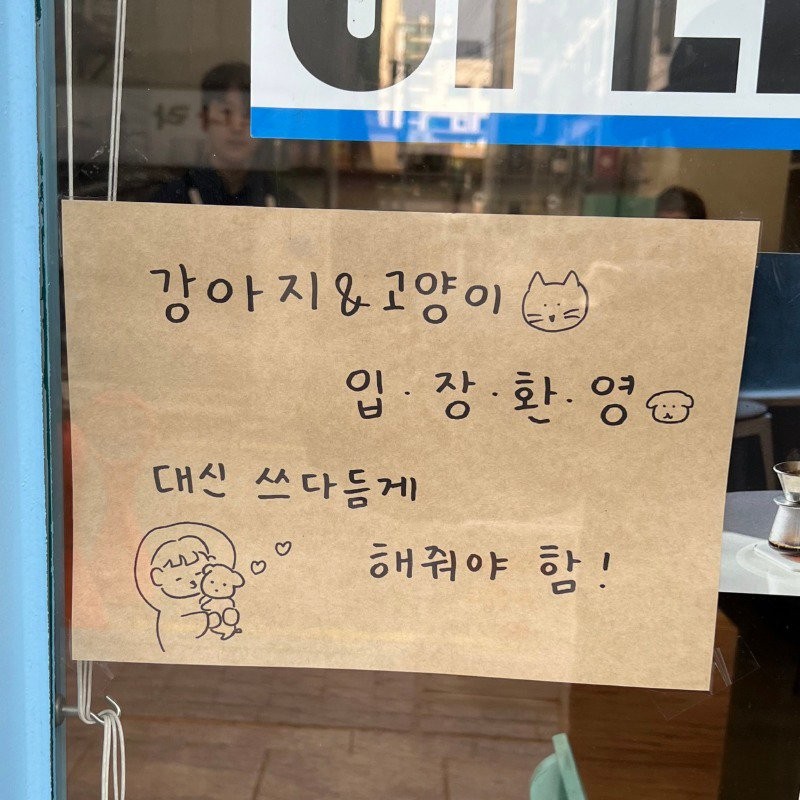 강아지&고양이
입·장·환·영
대신 쓰다듬게
해줘야 함!